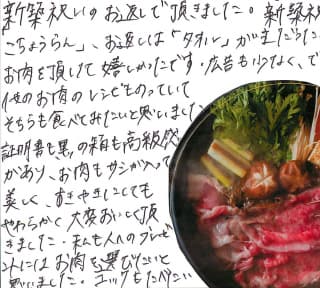 新築祝いのお返しで頂きました。新築祝
「こちょうらん」、お返しは「タオル」が主だった
お肉を頂けて嬉しかったです。広告も
他のお肉のレシピものっていて
そちらも食べてみたいと思いました
証明書も黒の箱も高級感
があり、お肉もサシが入って
美しく、すきやきにしても
やわらかく大変おいしく頂
きました。私も人へのプレゼ
ントにはお肉を選びたいと
思いました。コロッケもたべたい